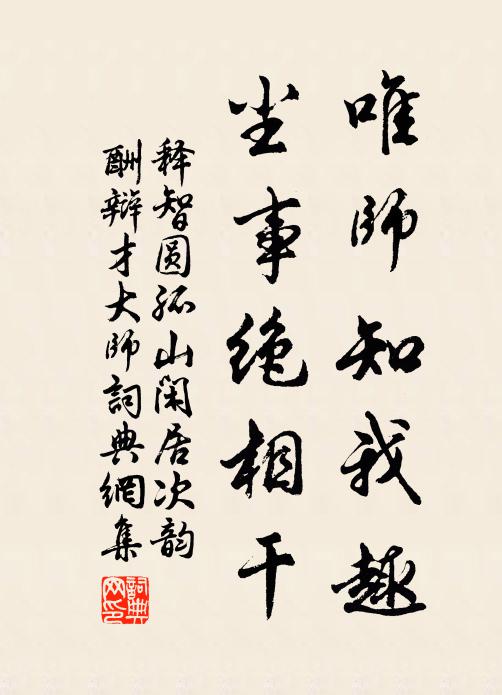 唯师知我趣
尘事绝相干
释智圆孤山闲居次韵
酬辩才大师詞典網集
詞典網印